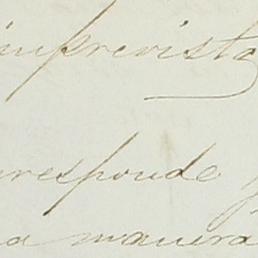 imprevista
responde
a manera